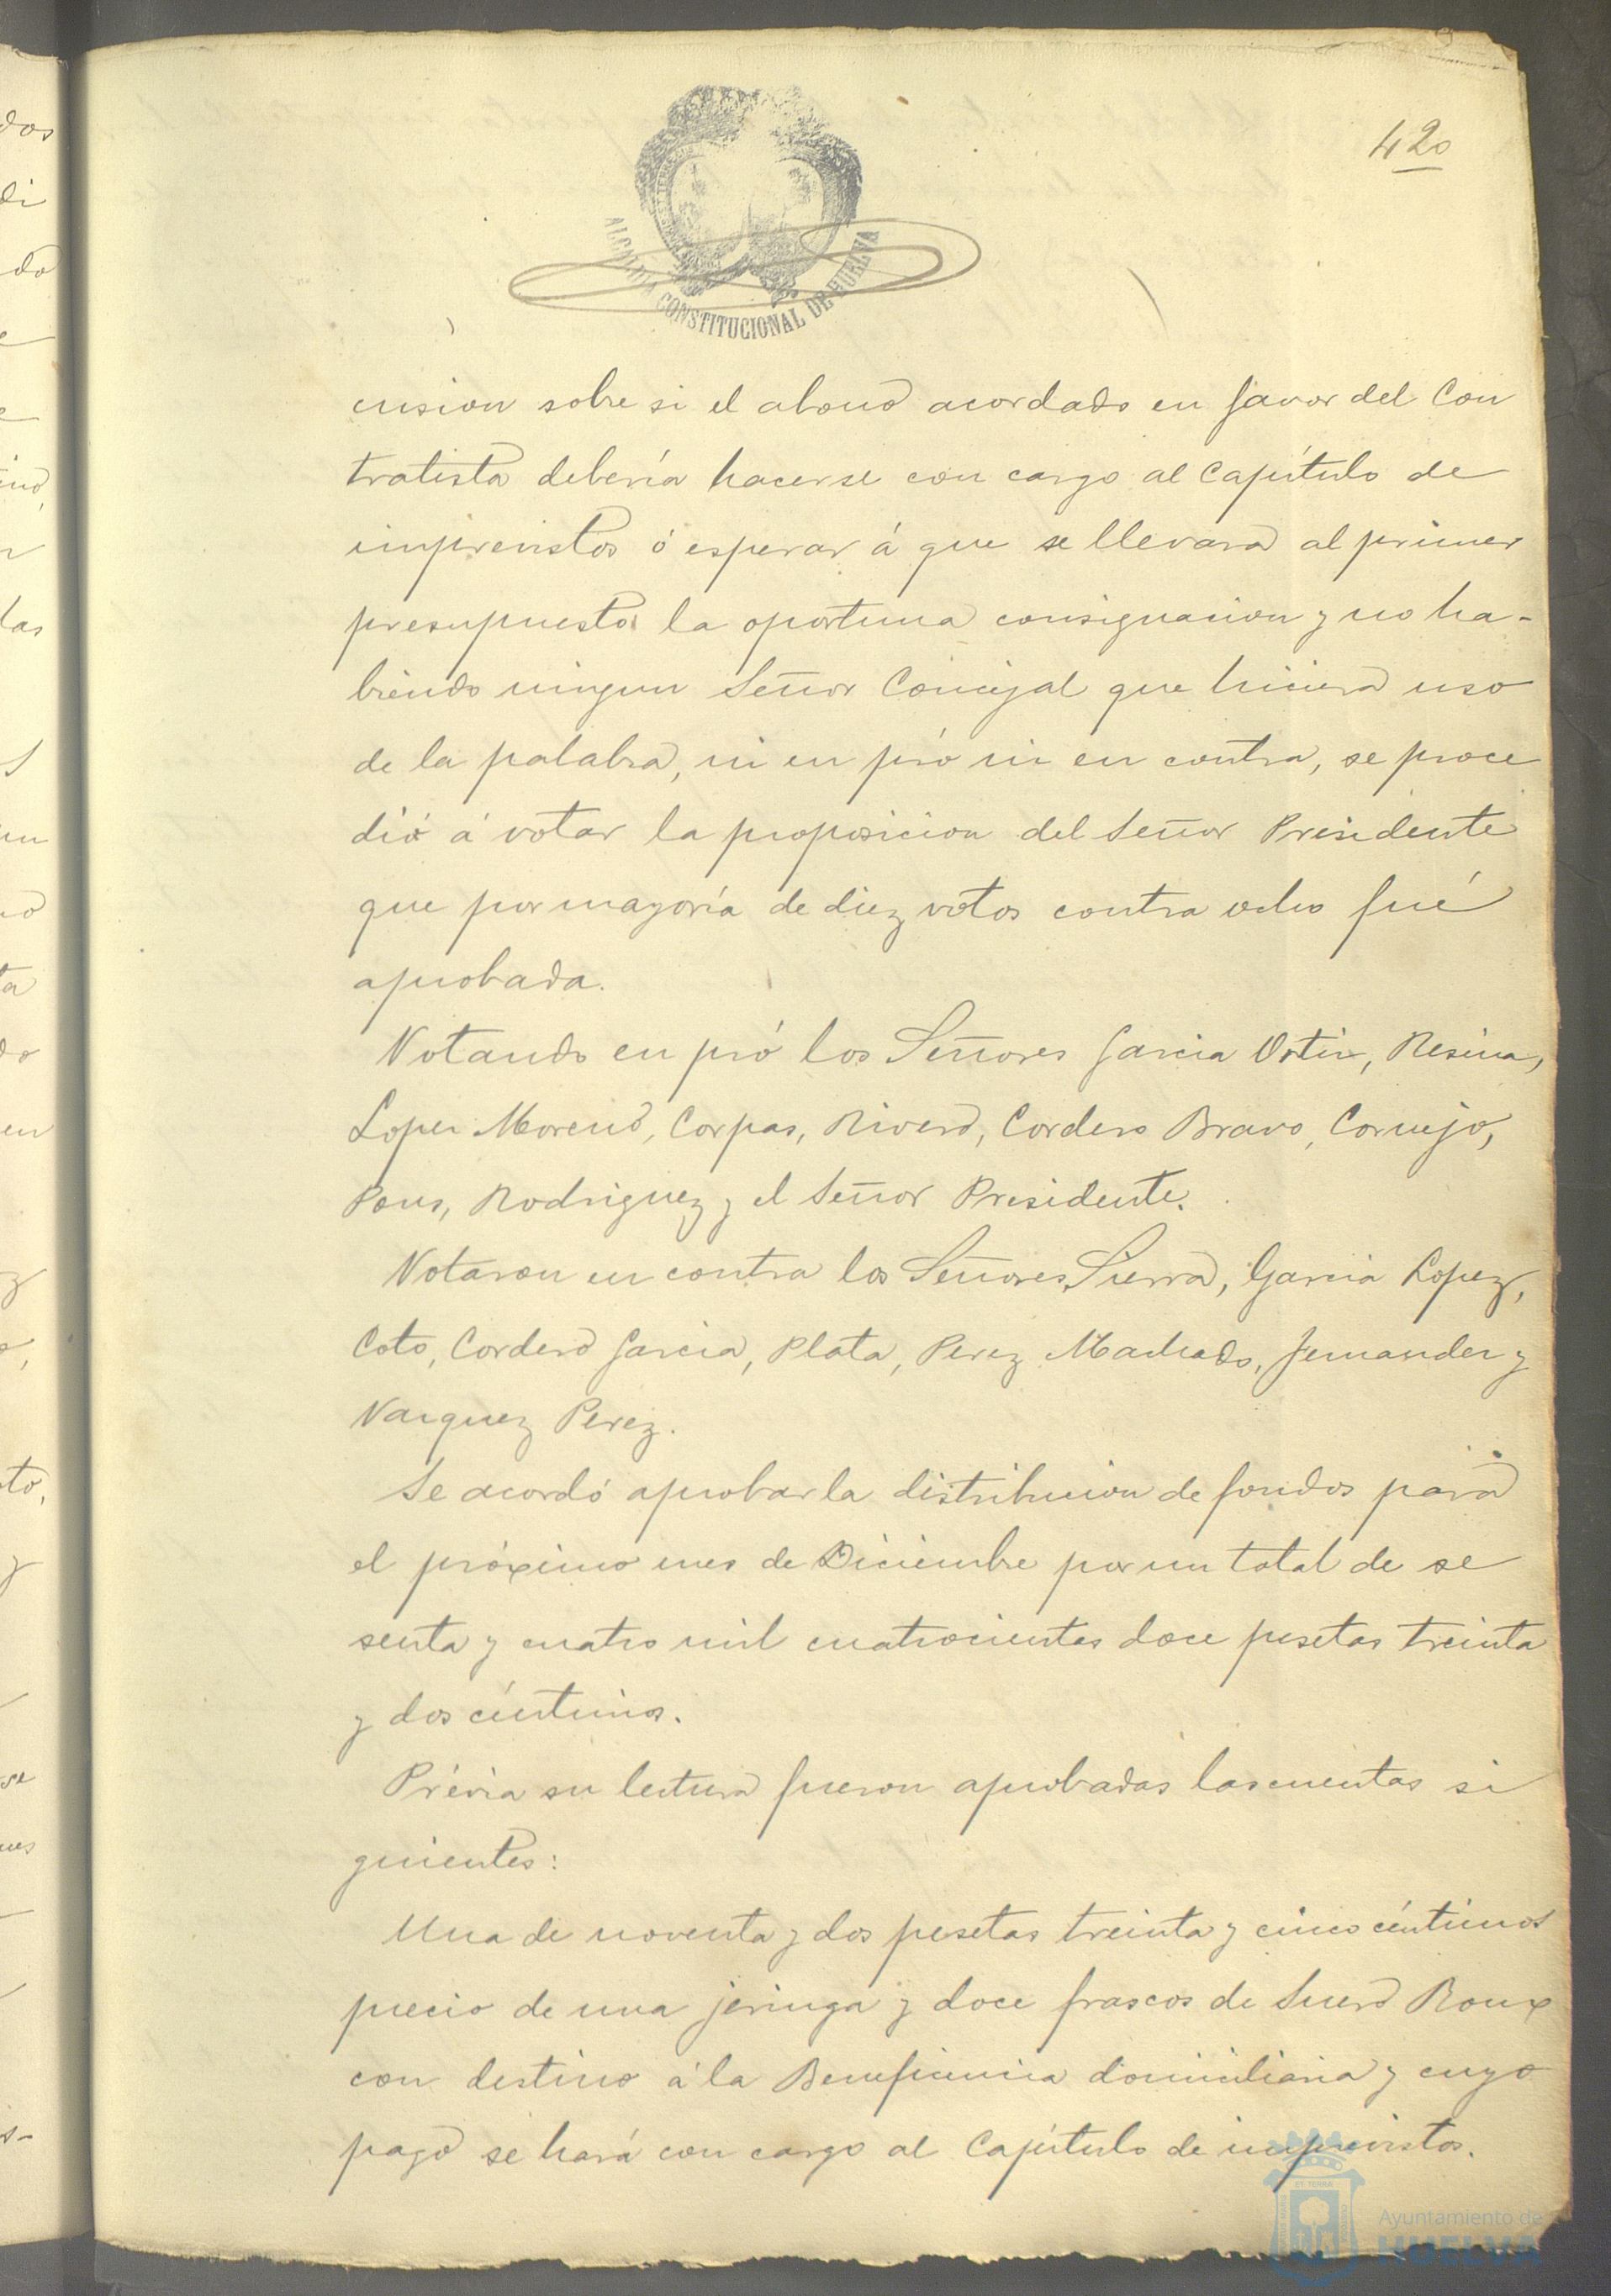 420
ALCALDIA CONSTITUCIONAL DE HUELVA
cusion sobre si el abono acordado en favor del Con
tratista debería hacerse con cargo al Capítulo de
imprevistos ó esperar á que se llevara al primer
presupuesto la oportuna consignacion y no ha-
biendo ningun Señor Concejal que hiciera uso
de la palabra, ni en pró ni en contra, se proce
dió á votar la proposicion del Señor Presidente
que por mayoría de diez votos contra ocho fué
aprobada.
Votando en pró los Señores Garcia Ortiz, Resina,
Lopez Moreno, Corpas, Rivero, Cordero Bravo, Cornejo,
Pons, Rodriguez y el Señor Presidente.
Votaron en contra los Señores Sierra, Garcia Lopez,
Coto, Cordero Garcia, Plata, Perez Machado, Fernandez y
Vazquez Perez.
Se acordó aprobar la distribucion de fondos para
el próximo mes de Diciembre por un total de se
senta y cuatro mil cuatrocientas doce pesetas treinta
y dos céntimos.
Prévia su lectura fueron aprobadas las cuentas si
guientes:
Una de noventa y dos pesetas treinta y cinco céntimos
precio de una jeringa y doce frascos de Suero Roux
con destino á la Beneficencia domiciliaria y cuyo
pago se hará con cargo al Capítulo de imprevistos.
Ayuntamiento de
HUELVA